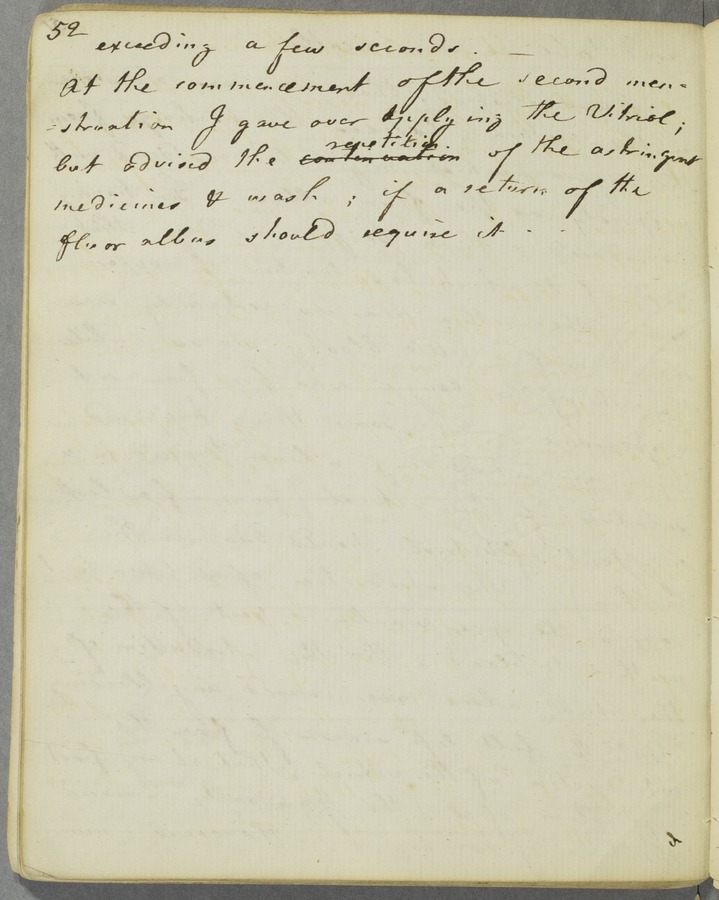 52
exceeding a few seconds. —
At the commencement of the second men=
=struation I gave over applying the Vitriol;
repetition
but advised the continuation of the astringent
medicines & wash; if a return of the
fluor albus should require it - -